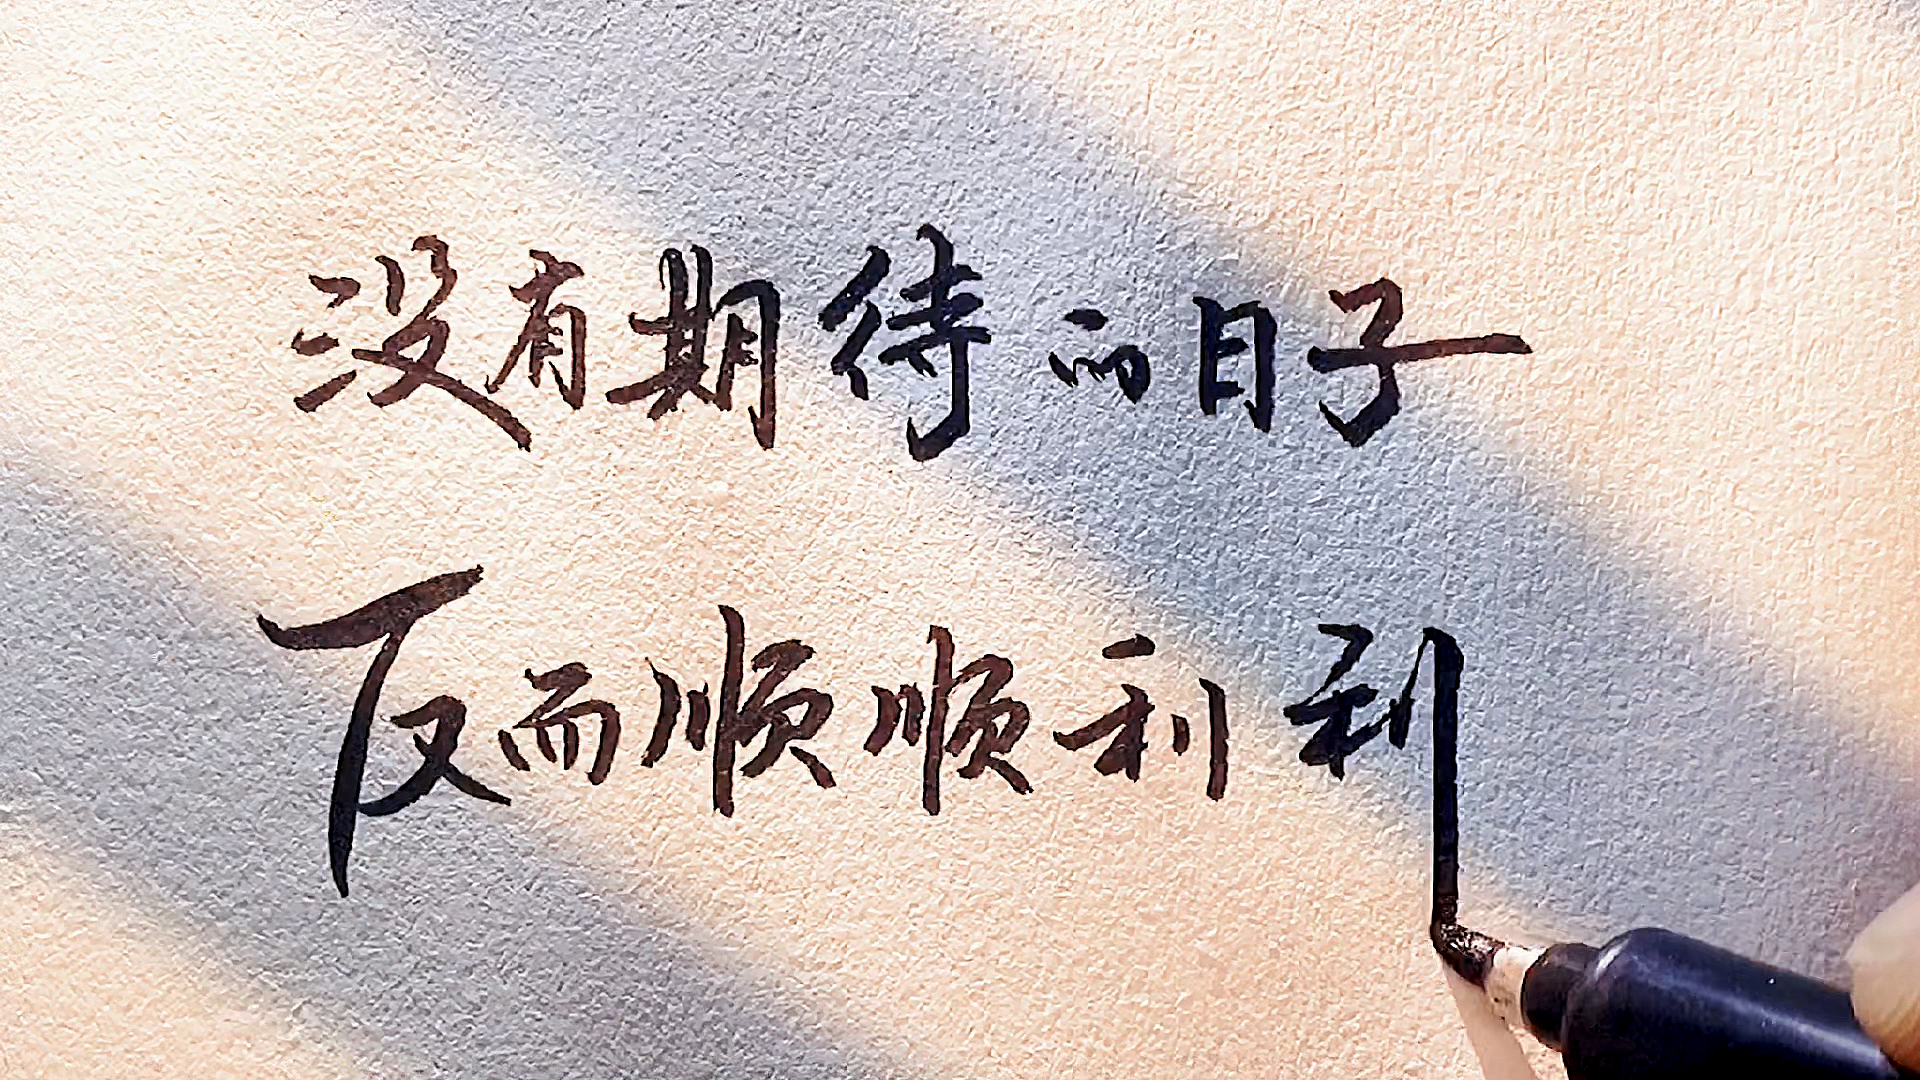 没有期待的日子
反而顺顺利利